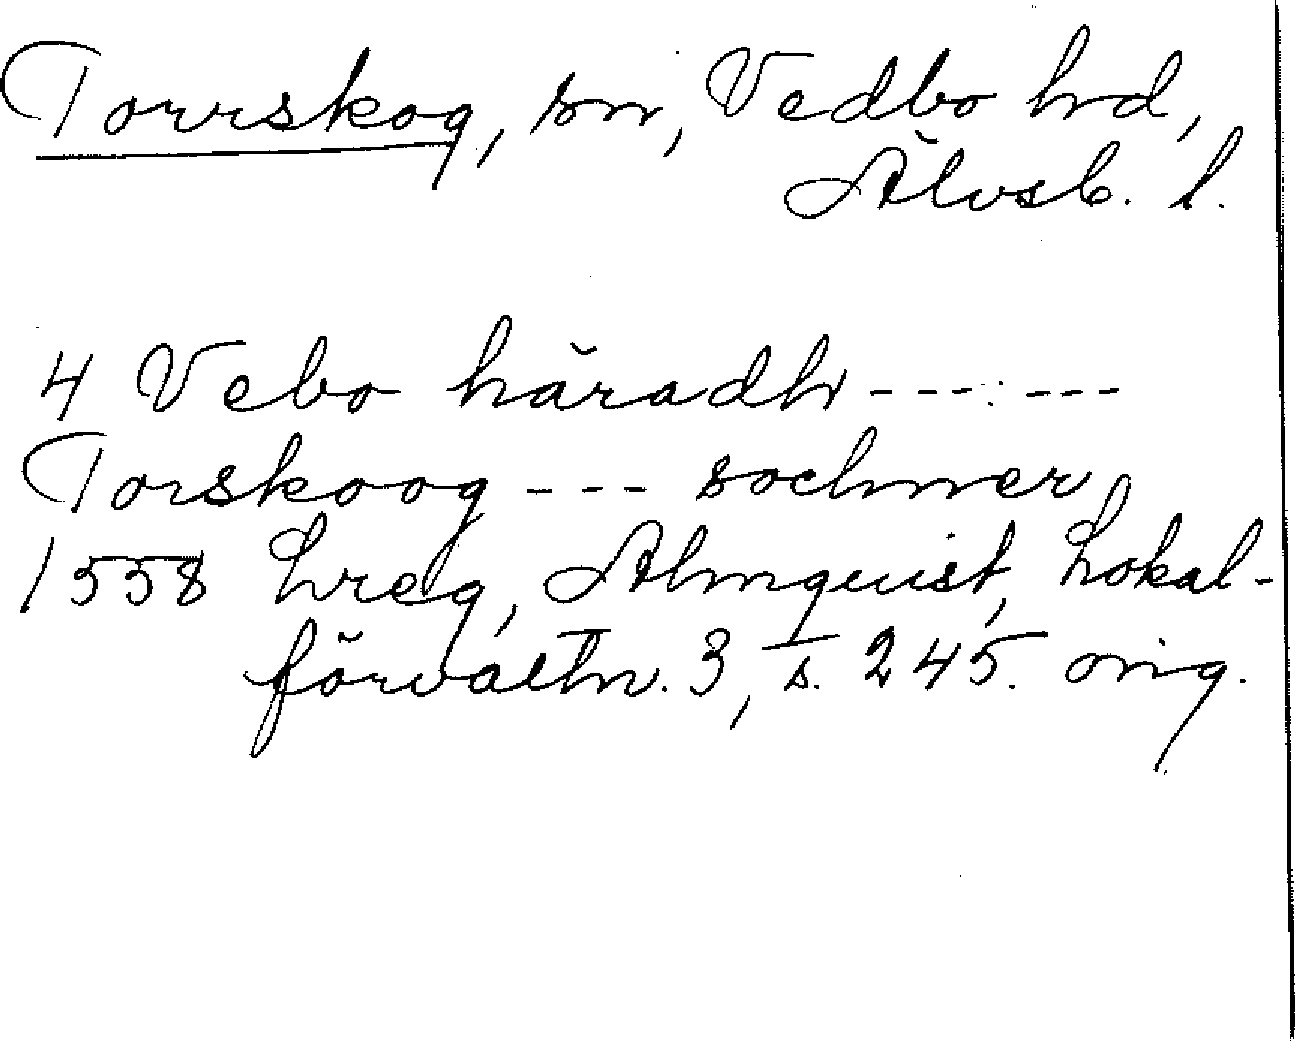 Torrskog, sn, Vedbo hd,
Älvsb. l.
4 Vebo häradh --- ---
Torskoog --- sochner
1558 Lreg, Almquist, Lokal-
förvaltn. 3, s. 245. orig.